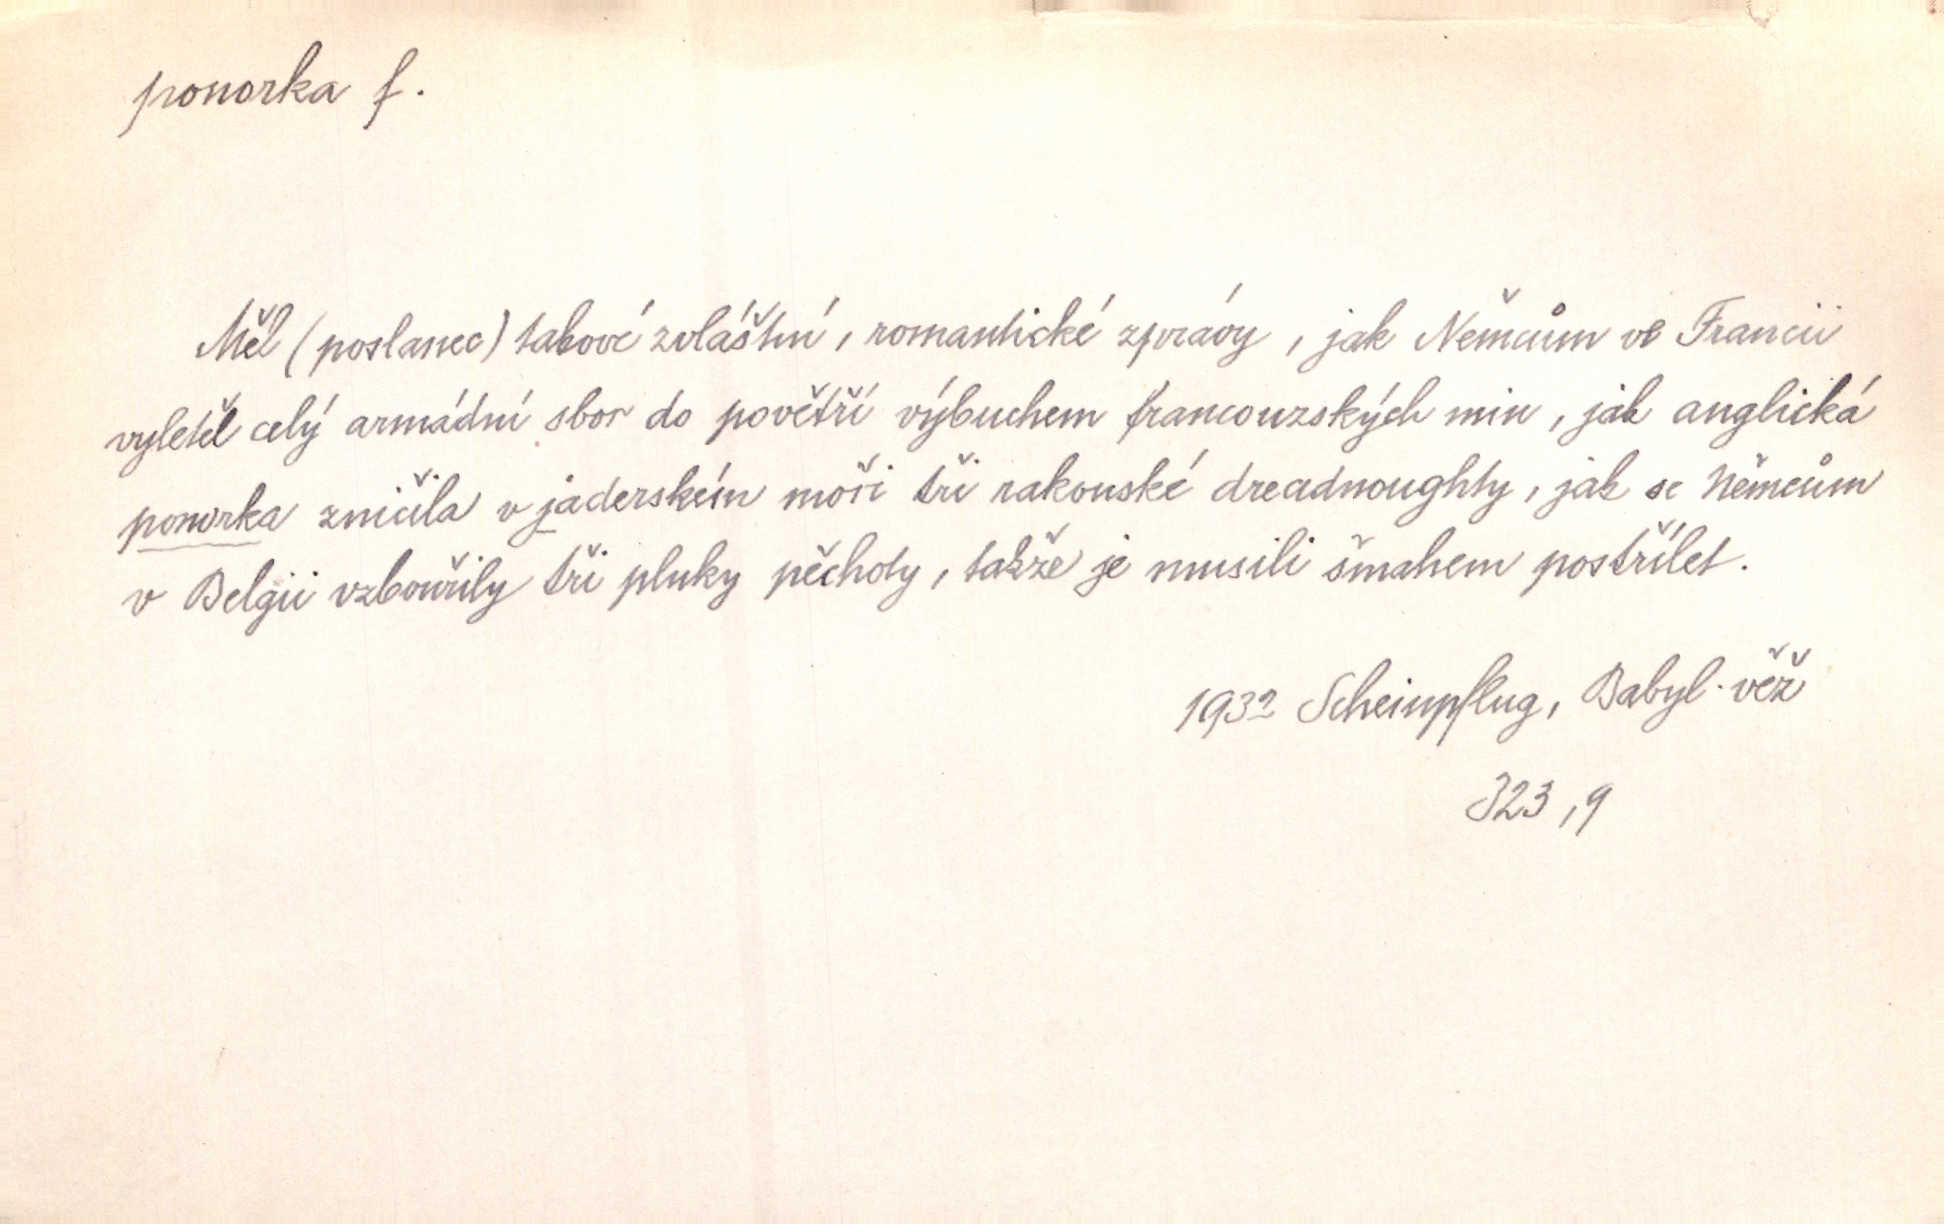 ponorka f.
Měl (poslanec) takové zvláštní, romantické zprávy, jak Němcům ve Francii
vyletěl celý armádní sbor do povětří výbuchem francouzských min, jak anglická
ponorka zničila v jaderském moři tři rakouské dreadnoughty, jak se Němcům
v Belgii vzbouřily tři pluky pěchoty, takže je musili šmahem postřílet.
1932 Scheinpflug, Babyl. věž
323,9